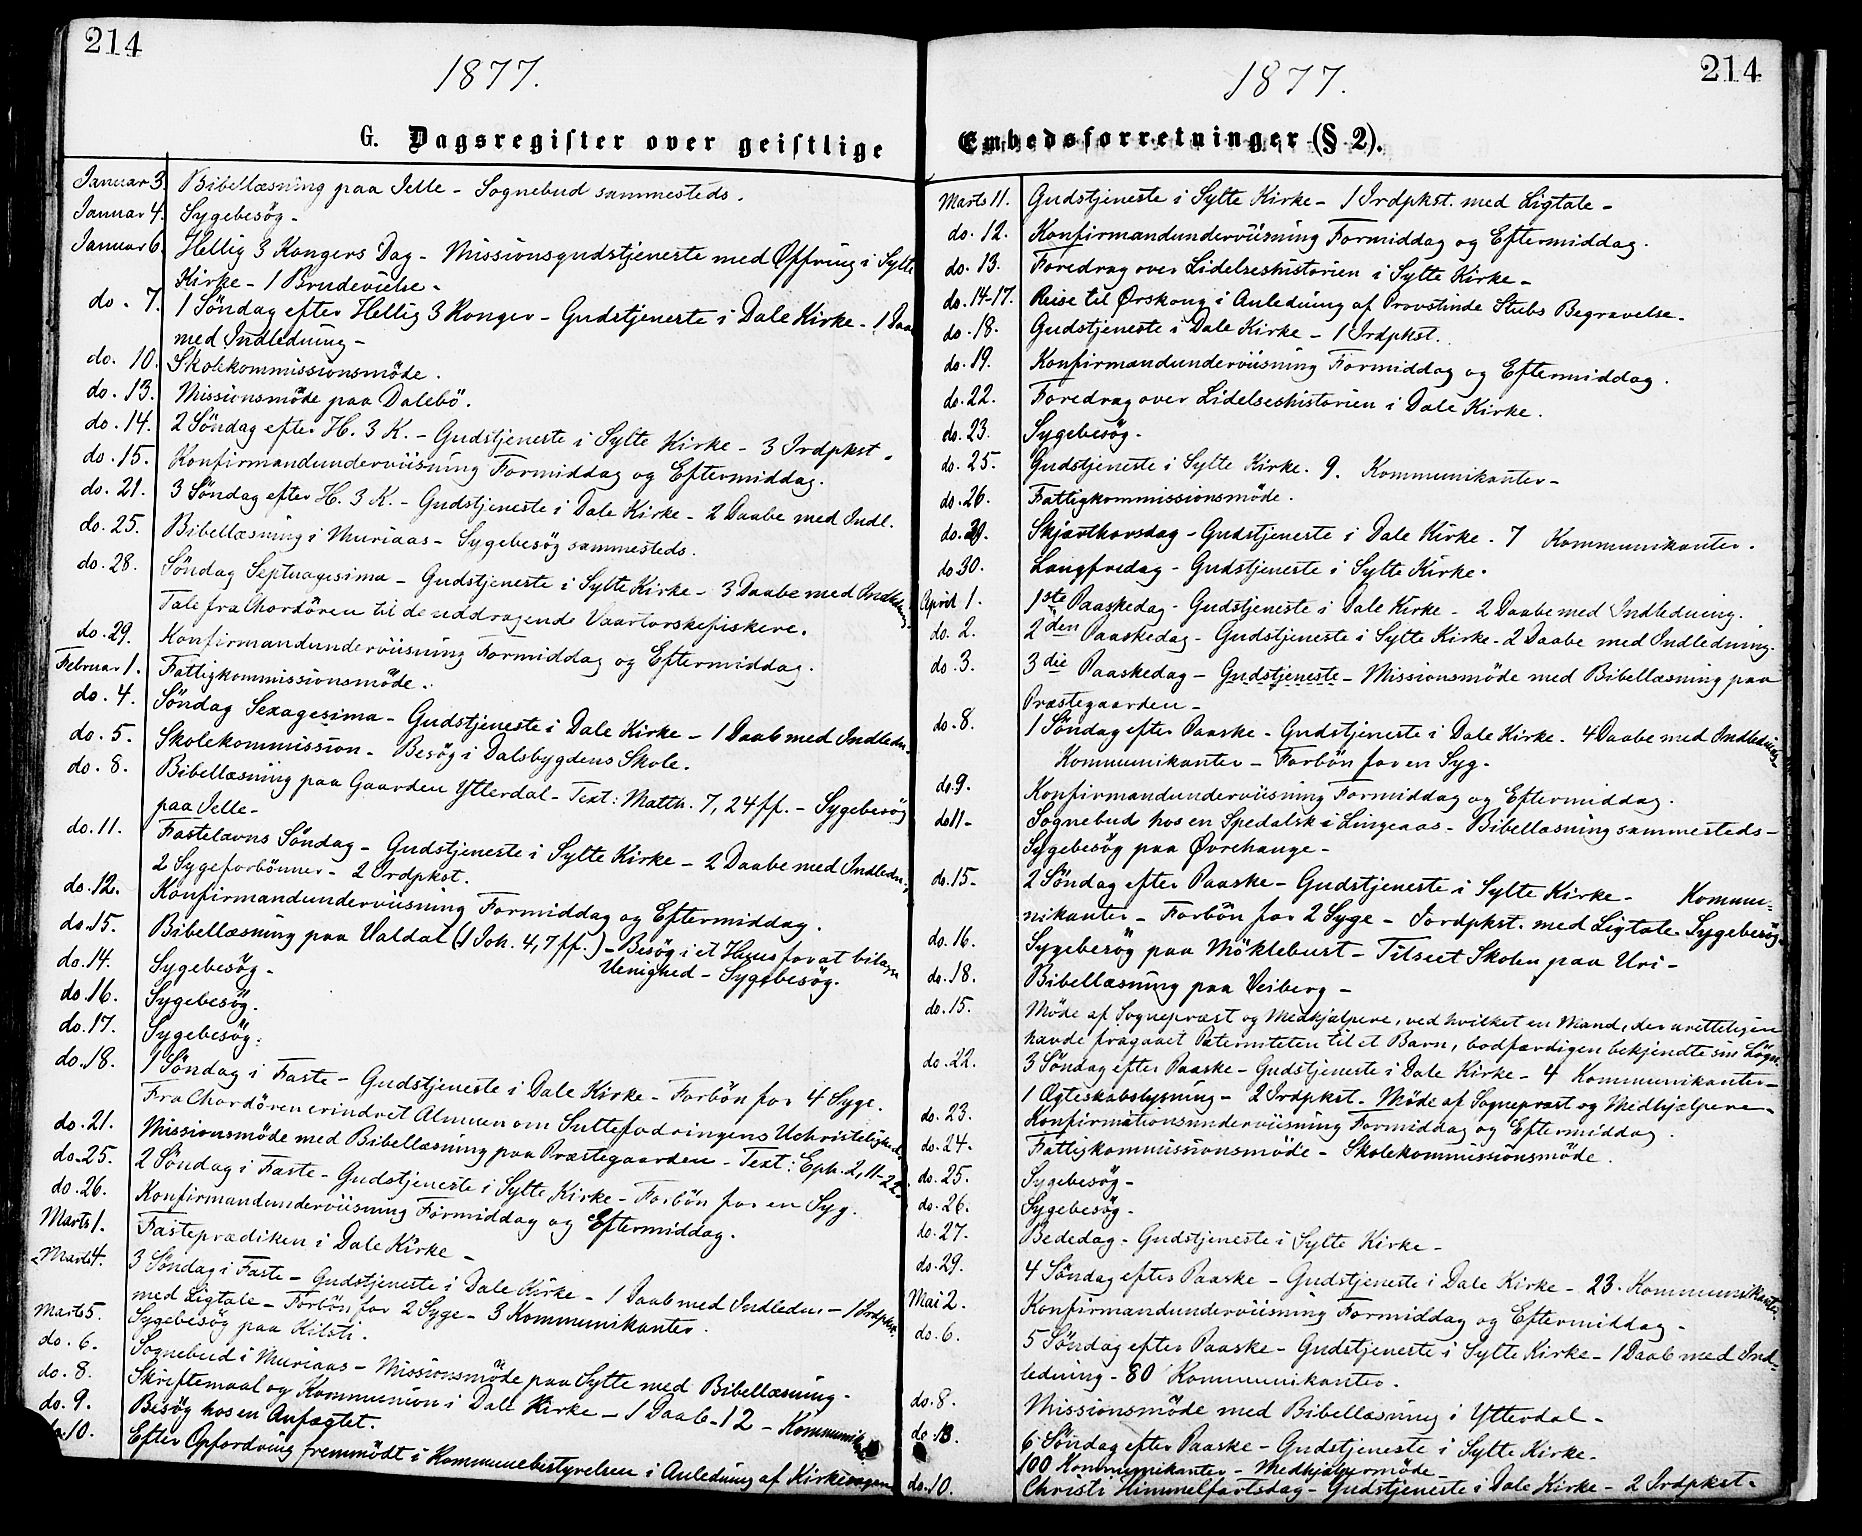 214
1877.
G. Dagsregister over geistlige
Januar 3. Bibellæsning paa Jelle - Sognebud sammesteds.
Januar 4. Sygebesög -
Januar 6. Hellig 3 Kongers Dag - Missionsgudstjeneste med Øffring i Sylte
Kirke - 1 Brudevielse -
do. 7. 1 Söndag efter Hellig 3 Konger - Gudstjeneste i Dale Kirke - 1 Daab
med Indledning -
do. 10. Skolekommissionsmöde.
do. 13. Missionsmöde paa Dalebö.
do. 14. 2 Söndag efter H. 3 K. - Gudstjeneste i Sylte Kirke - 3 Jrdpkst.
do. 15. Konfirmandunderviisning Formiddag og Eftermiddag.
do. 21. 3 Söndag efter H. 3 K. - Gudstjeneste i Dale Kirke - 2 Daabe med Indl.
do. 25. Bibellæsning i Muriaas - Sygebesög sammesteds.
do. 28. Söndag Septuagesima - Gudstjeneste i Sylte Kirke - 3 Daabe med Indledning
Tale fra Chordören til de uddragende Vaartorskefiskere.
do. 29. Konfirmandunderviisning Formiddag og Eftermiddag.
Februar 1. Fattigkommissionsmöde.
do. 4. Söndag Sexagesima - Gudstjeneste i Dale Kirke - 1 Daab med Indledn.
do. 5. Skolekommission - Besög i Dalsbygdens Skole.
do. 8. Bibellæsning paa Gaarden Ytterdal - Text: Matth. 7, 24 ff. - Sygebesög
paa Jelle -
do. 11. Fastelavns Söndag - Gudstjeneste i Sylte Kirke - 2 Daabe med Indledn.
2 Sygeforbönner - 2 Jrdpkst.
do. 12. Konfirmandunderviisning Formiddag og Eftermiddag.
do. 15. Bibellæsning paa Valdal (1 Joh. 4, 7 ff.) - Besög i et Huus for at bilægge
Uenighed - Sygebesög.
do. 14. Sygebesög -
do. 16. Sygebesög.
do. 17. Sygebesög.
do. 18. 1 Söndag i Faste - Gudstjeneste i Dale Kirke - Forbön for 4 Syge.
Fra Chordören erindret Almuen om Sultefodringens Uchristelighed.
do. 21. Missionsmöde med Bibellæsning paa Præstegaarden - Text: Eph. 2, 11-22.
do. 25. 2 Söndag i Faste - Gudstjeneste i Sylte Kirke - Forbön for en Syg.
do. 26. Konfirmandunderviisning Formiddag og Eftermiddag.
Marts 1. Fasteprædiken i Dale Kirke -
Marts 4. 3 Söndag i Faste - Gudstjeneste i Dale Kirke - 1 Daab med Indledn. - 1 Jrdpkst.
med Ligtale - Forbön for 2 Syge - 3 Kommunikanter.
Marts 5. Sygebesög paa Kilsti.
do. 6. Sognebud i Muriaas - Missionsmöde paa Sylte med Bibellæsning.
do. 8. Skriftemaal og Kommunion i Dale Kirke - 1 Daab - 12 - Kommunik
do. 9. Besög hos en Anfægtet.
do. 10. Efter Opfordring fremmödt i Kommunebestyrelsen i Anledning af Kirkesagen
214
1877.
Embedsforretninger (§ 2).
Marts 11. Gudstjeneste i Sylte Kirke - 1 Jrdpkst. med Ligtale -
do. 12. Konfirmandunderviisning Formiddag og Eftermiddag.
do. 13. Foredrag over Lidelseshistorien i Sylte Kirke -
do. 14-17. Reise til Ørskoug i Anledning af Provstinde Stubs Begravelse.
do. 18. Gudstjeneste i Dale Kirke - 1 Jrdpkst.
do. 19. Konfirmandunderviisning Formiddag og Eftermiddag.
do. 22. Foredrag over Lidelseshistorien i Dale Kirke.
do. 23. Sygebesög.
do. 25. Gudstjeneste i Sylte Kirke. 9. Kommunikanter -
do. 26. Fattigkommissionsmöde.
do. 29. Skjærthorsdag - Gudstjeneste i Dale Kirke. 7 Kommunikanter.
do 30. Langfredag - Gudstjeneste i Sylte Kirke.
April 1. 1ste Paaskedag - Gudstjeneste i Dale Kirke - 2 Daabe med Indledning.
do. 2. 2den Paaskedag - Gudstjeneste i Sylte Kirke - 2 Daabe med Indledning.
do. 3. 3die Paaskedag - Gudstjeneste - Missionsmöde med Bibellæsning paa
Præstegaarden -
do. 8. 1 Söndag efter Paaske - Gudstjeneste i Dale Kirke. 4 Daabe med Indledning -
Kommunikanter - Forbön for en Syg.
do. 9. Konfirmandunderviisning Formiddag og Eftermiddag.
do 11 - Sognebud hos en Spedalsk i Lingeaas - Bibellæsning sammesteds -
Sygebesög paa Øvrehauge -
do. 15 - 2 Söndag efter Paaske - Gudstjeneste i Sylte Kirke - Kommu-
nikanter - Forbön for 2 Syge - Jordpkst. med Ligtale - Sygebesög
do. 16. Sygebesög paa Möklebust - Tilseet Skolen paa Uri -
do. 18. Bibellæsning paa Veiberg -
do. 15. Möde af Sognepræst og Medhjælpere, ved hvilket en Mand, der uretteligen
havde fragaaet Paterniteten til et Barn, bodfærdigen bekjendte sin Lögn.
do. 22. 3 Söndag efter Paaske - Gudstjeneste i Dale Kirke - 4 Kommunikanter -
1 Ægteskabslysning - 2 Jrdpkst. - Möde af Sognepræst og Medhjælpere -
do. 23. Konfirmationsunderviisning Formiddag og Eftermiddag.
do. 24. Fattigkommissionsmöde - Skolekommissionsmöde.
do. 25. Sygebesög -
do. 26. Sygebesög -
do. 27. Bededag - Gudstjeneste i Sylte Kirke -
do. 29. 4 Söndag efter Paaske - Gudstjeneste i Dale Kirke - 23 - Kommunikanter
Mai 2. Konfirmandunderviisning Formiddag og Eftermiddag -
do. 6. 5 Söndag efter Paaske - Gudstjeneste i Sylte Kirke - 1 Daab med Ind-
ledning - 80 Kommunikanter.
do. 8. Missionsmöde med Bibellæsning i Ytterdal -
do. 13. 6 Söndag efter Paaske - Gudstjeneste i Sylte Kirke -
100 Kommunikanter - Medhjælpermöde -
do. 10. Christi Himmelfartsdag - Gudstjeneste i Dale Kirke - 2 Jrdpkst.